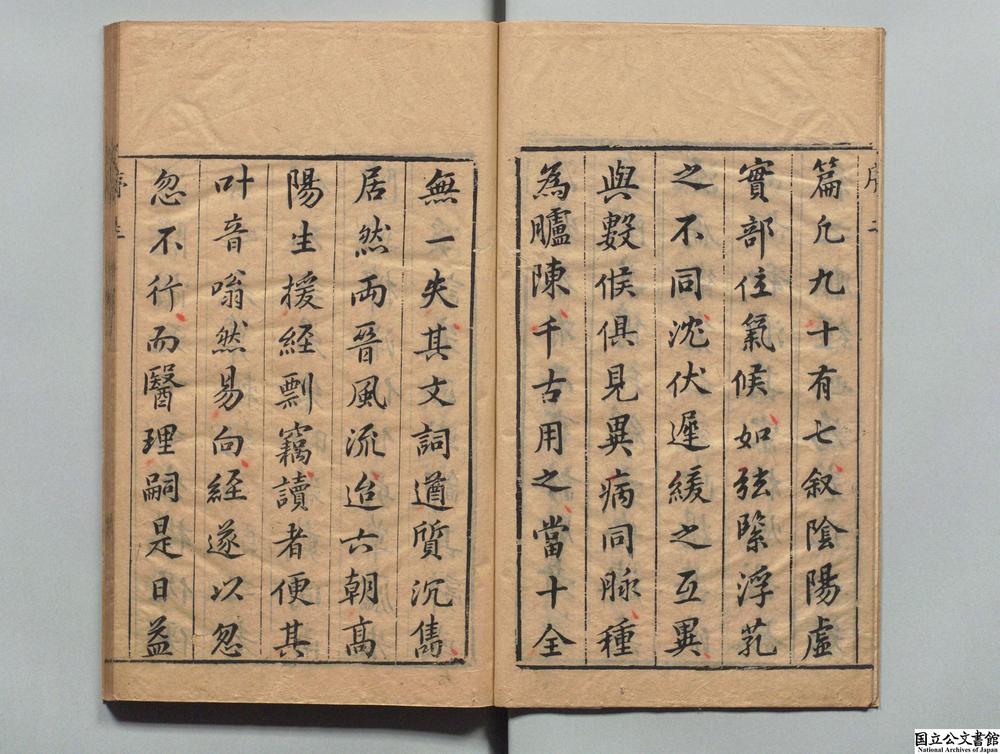 篇凡九十有七叙陰陽虛
實部位氣候如弦緊浮芤
之不同沈伏遲緩之互異
與數候俱見異病同脉種
為臚陳千古用之當十全
無一失其文詞遒質沉雋
居然両晉風流迨六朝高
陽生援経剽竊讀者便其
叶音嗡然易向経遂以忽
忽不行而醫理嗣是日益
国立公文書館
National Archives of Japan